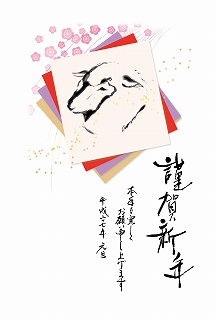 謹賀新年
本年も宜しく
お願い申し上げます
平成二十七年 元旦